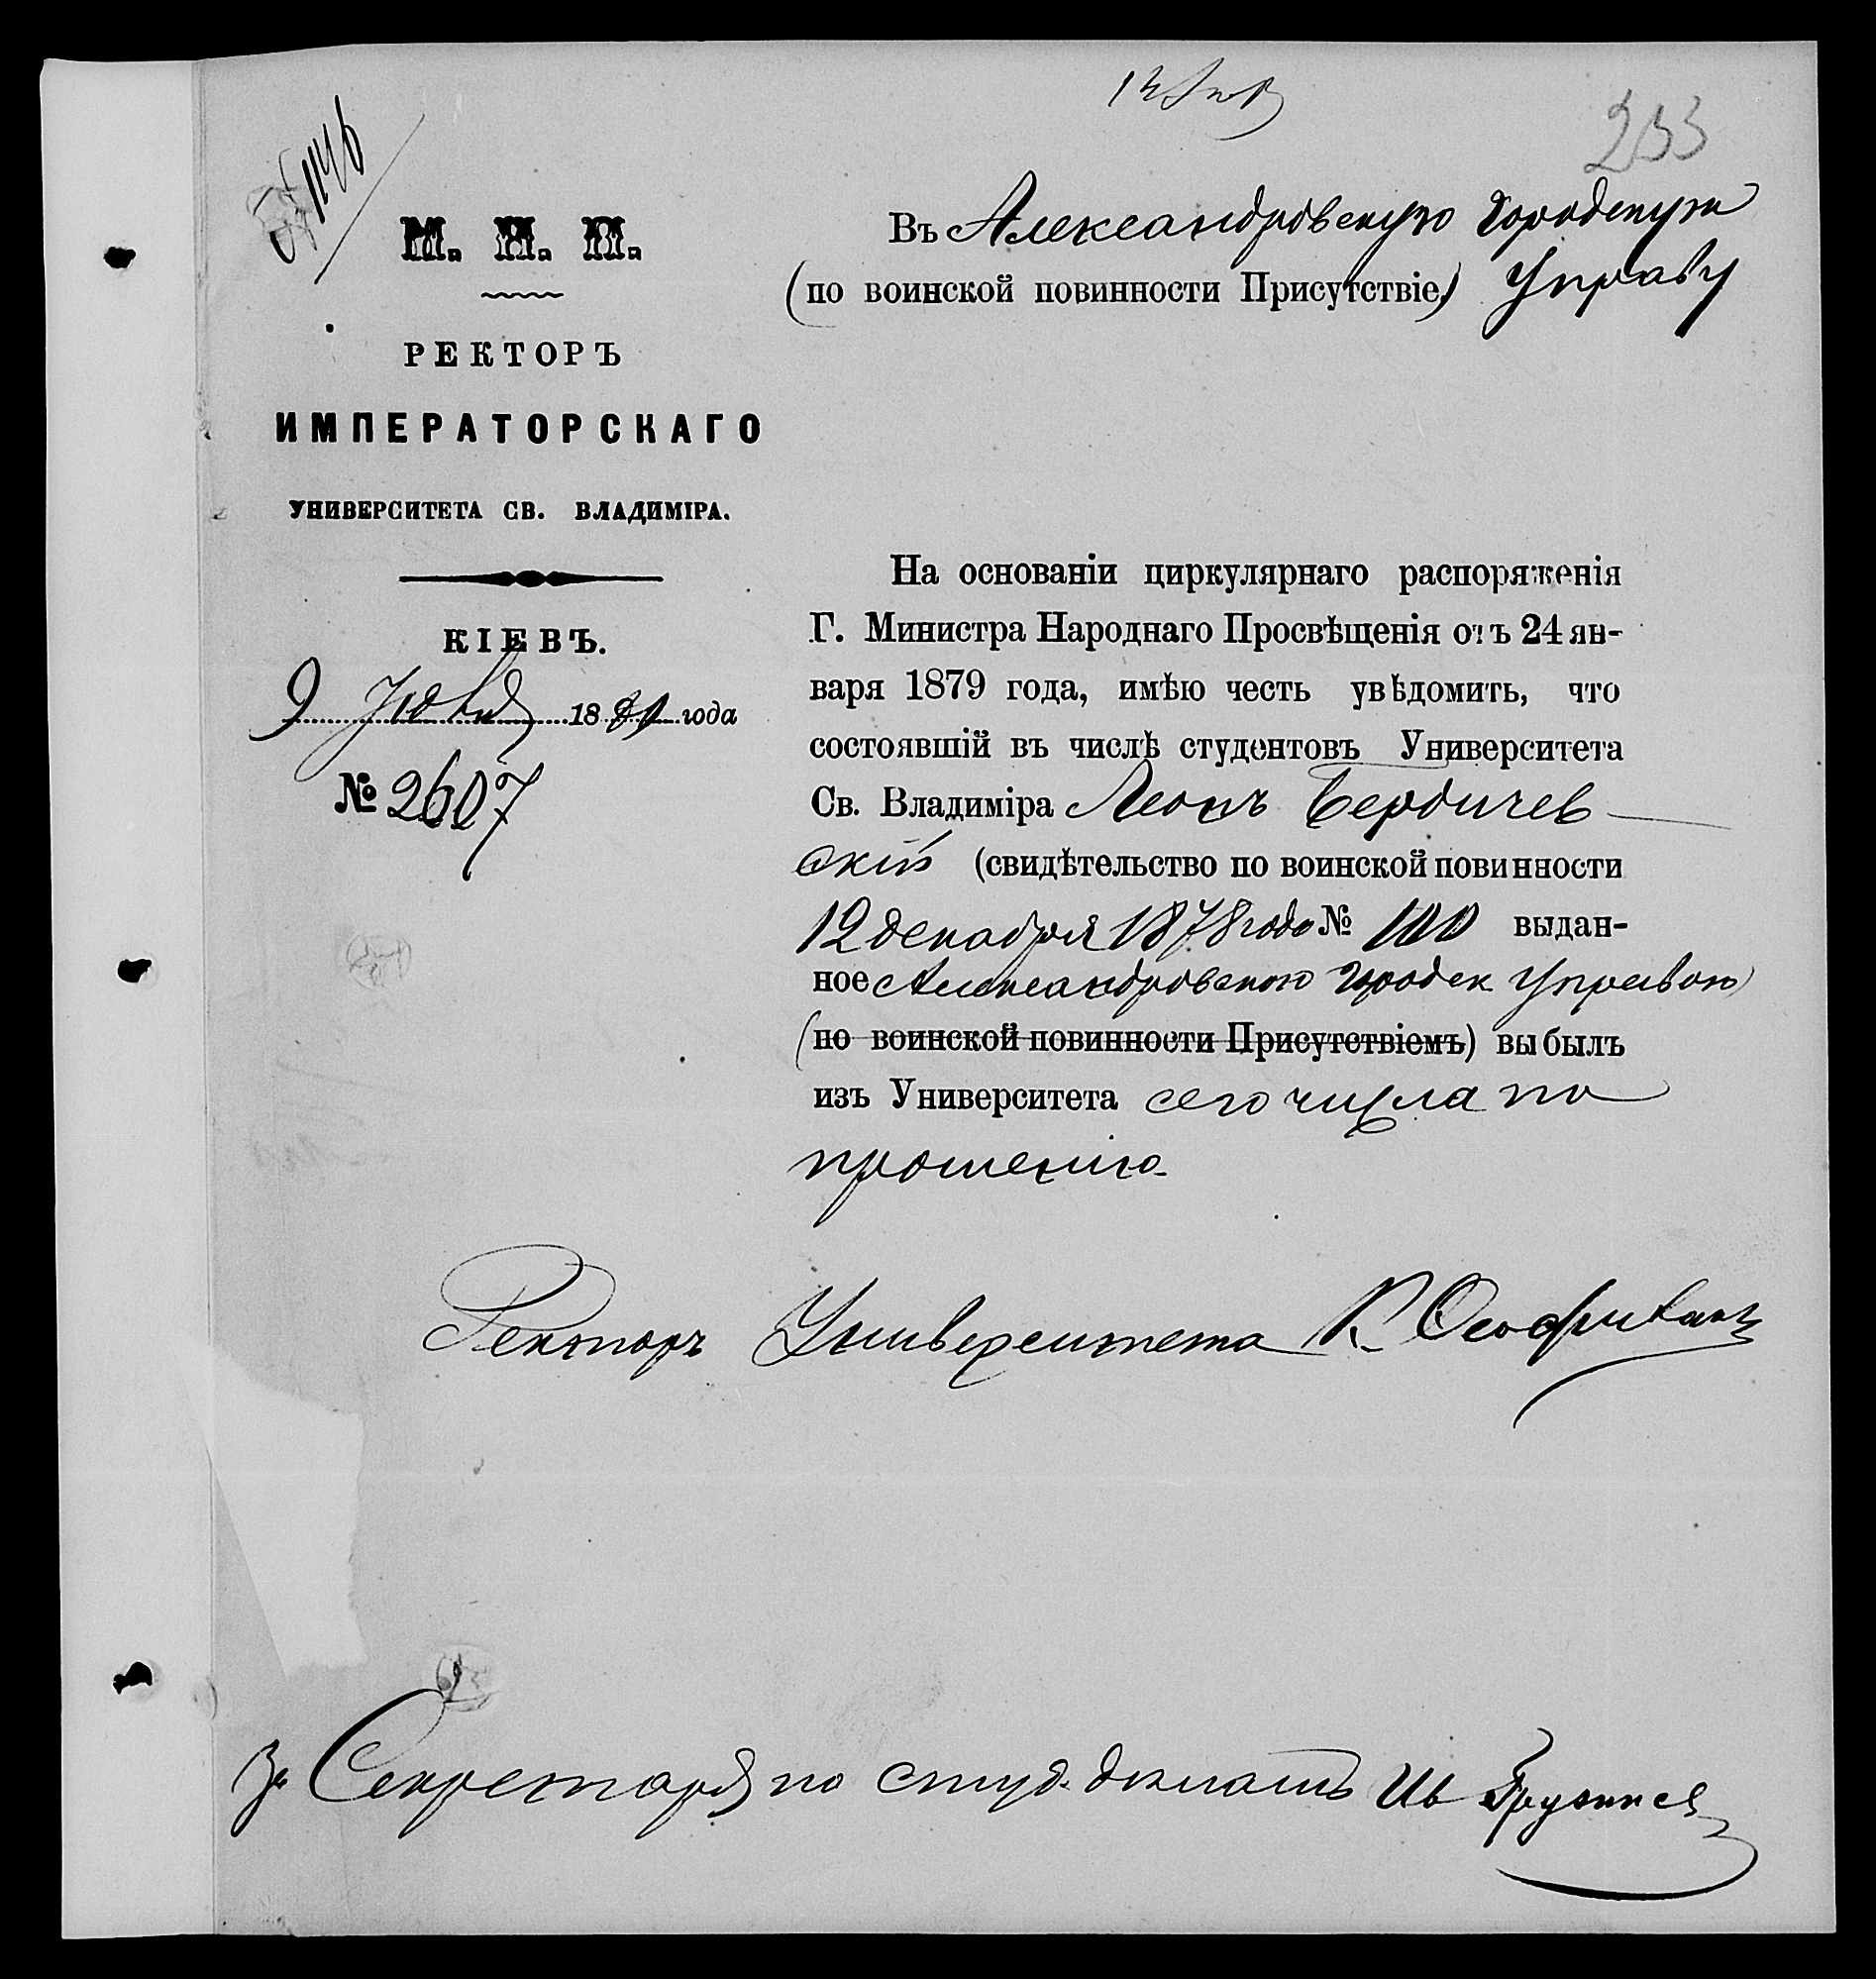 233
№ 1146
М. Н. П.
РЕКТОРЪ
ИМПЕРАТОРСКАГО
УНИВЕРСИТЕТА СВ. ВЛАДИМІРА.
КІЕВЪ.
9 1881 года
№ 2607
Въ Александровскую Городскую
(по воинской повинности Присутствіе) Управу
На основаніи циркулярнаго распоряженія
Г. Министра Народнаго Просвѣщенія отъ 24 ян-
варя 1879 года, имѣю честь увѣдомить, что
состоявшій въ числѣ студентовъ Университета
Св. Владиміра Леонъ Бердичев-
скій (свидѣтельство по воинской повинности
12 декабря 1878 года № 100 выдан-
ное Александровскою Городск Управою
(по воинской повинности Присутствіемъ) выбылъ
изъ Университета сего числа по
прошенію.
Ректоръ Университета К. Ѳеофилактовъ
За Секретаря по студ. дѣламъ Ив